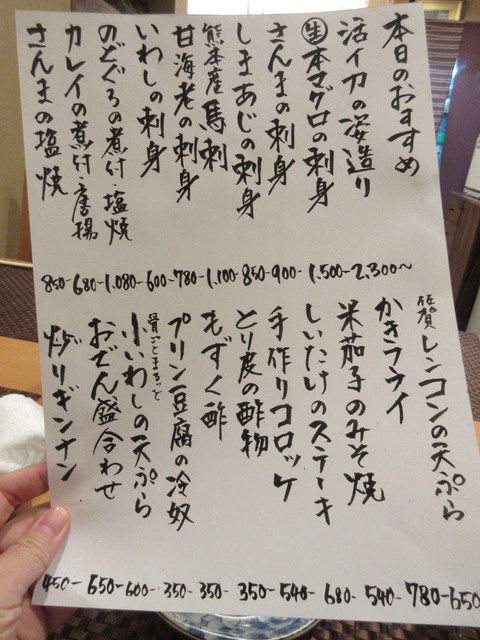 本日のおすすめ
活イカの姿造り 2,300~
㊤生本マグロの刺身 1,500-
さんまの刺身 900-
しまあじの刺身 850-
熊本産馬刺 1,100-
甘海老の刺身 780-
いわしの刺身 600-
のどぐろの煮付・塩焼 1,080-
カレイの煮付・唐揚 680-
さんまの塩焼 850-
佐賀レンコンの天ぷら 650-
かきフライ 780-
米茄子のみそ焼 540-
しいたけのステーキ 680-
手作りコロッケ 540-
とり皮の酢物 350-
もずく酢 350-
プリン豆腐の冷奴 350-
骨ごとまるっと小いわしの天ぷら 600-
おでん盛合わせ 650-
炒りギンナン 450-